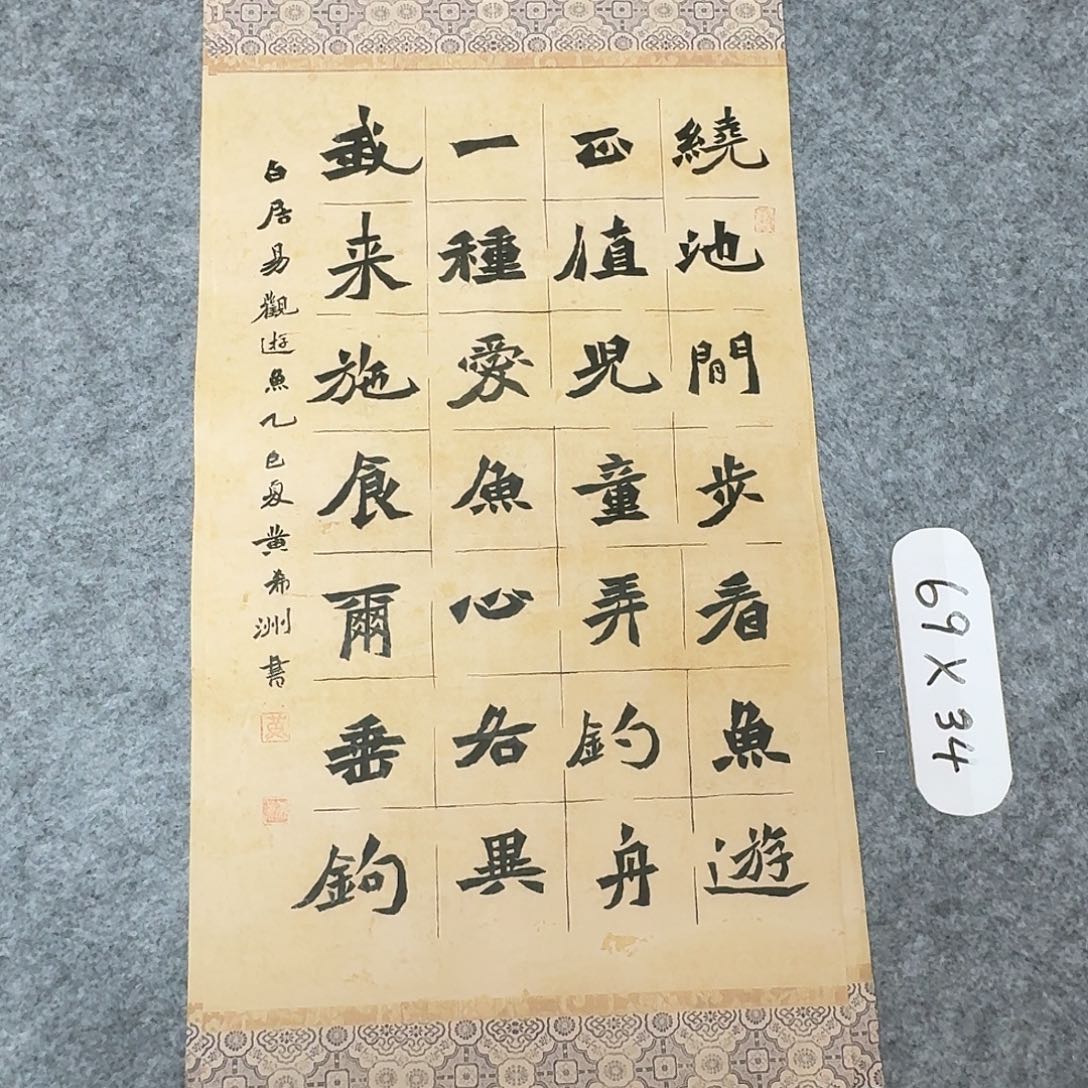 繞池閒步看魚遊
正值兒童弄釣舟
一種愛魚心各異
我来施食爾垂鉤
白居易觀遊魚乙巳夏黄希洲書
黄
69X34